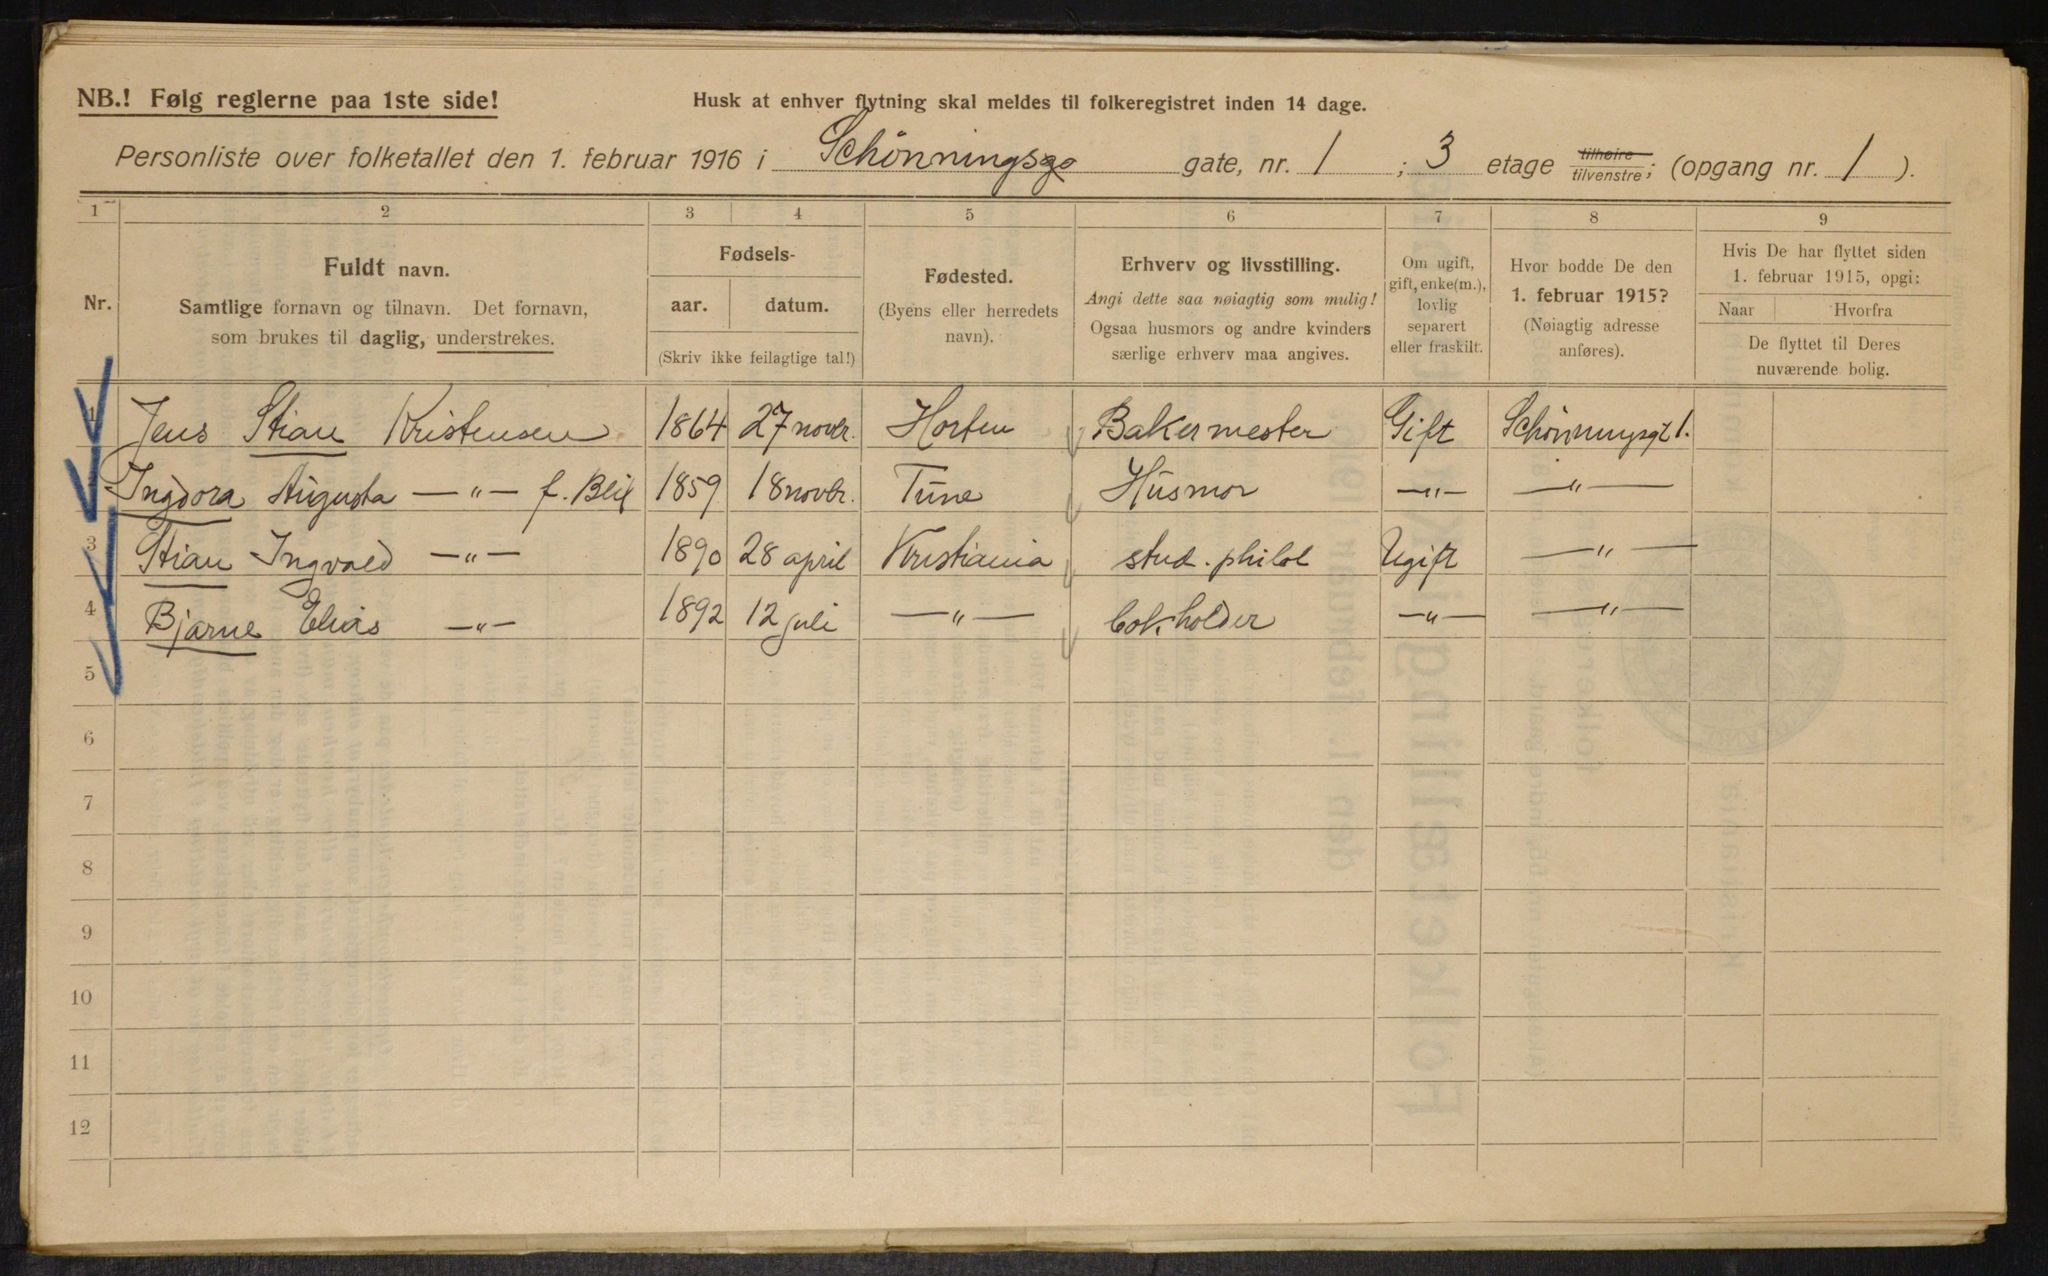 NB.! Følg reglerne paa 1ste side!
Husk at enhver flytning skal meldes til folkeregistret inden 14 dage.
Personliste over folketallet den 1. februar 1916 i Schönningsge gate, nr. 1 ; 3 etage tilhøire tilvenstre; (opgang nr. 1 ).
1 2 3 4 5 6 7 8 9
Nr.
Fuldt navn.
Samtlige fornavn og tilnavn. Det fornavn,
som brukes til daglig, understrekes.
Fødsels-
aar. datum.
(Skriv ikke feilagtige tal!)
Fødested.
(Byens eller herredets
navn).
Erhverv og livsstilling.
Angi dette saa nøiagtig som mulig!
Ogsaa husmors og andre kvinders
særlige erhverv maa angives.
Om ugift,
gift, enke(m.),
lovlig
separert
eller fraskilt.
Hvor bodde De den
1. februar 1915?
(Nøiagtig adresse
anføres).
Hvis De har flyttet siden
1. februar 1915, opgi:
Naar Hvorfra
De flyttet til Deres
nuværende bolig.
1 Jens Stian Kristensen 1864 27 novbr. Horten Bakermester Gift Schönningsgt 1.
2 Ingdora Augusta —"— f. Blix 1859 18 novbr. Tune Husmor —"— —"—
3 Stian Ingvald —"— 1890 28 april Kristiania stud. philol Ugift —"—
4 Bjarne Elias —"— 1892 12 juli —"— bokholder —"— —"—
5
6
7
8
9
10
11
12